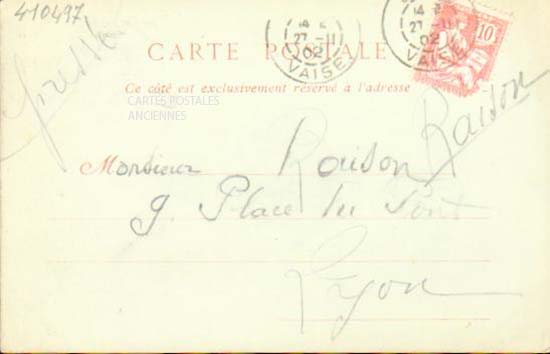 410497
14 E
27-11
02
VAISE
14 E
27-11
02
VAISE
10
CARTE POSTALE
Ce côté est exclusivement réservé à l'adresse
CARTES POSTALES
ANCIENNES
Pressé
Raison
Monsieur Raison
9. Place du Pont
Lyon